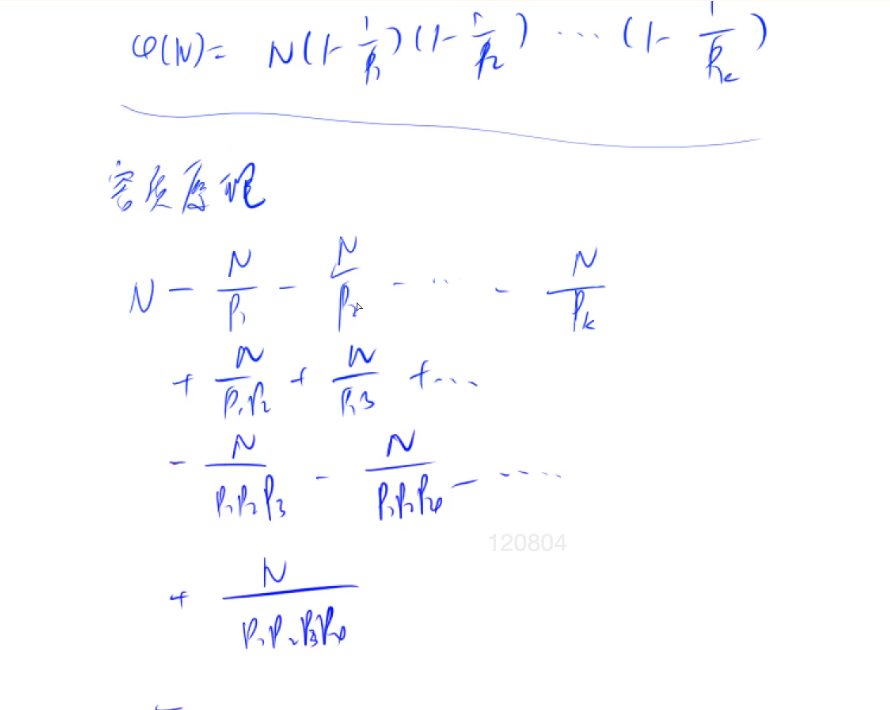 φ(N) = N(1 - 1/P₁)(1 - 1/P₂) ... (1 - 1/Pₖ)
容斥原理
N - N/P₁ - N/P₂ - ... - N/Pₖ
+ N/P₁P₂ + N/P₁P₃ + ...
- N/P₁P₂P₃ - N/P₁P₂P₄ - ....
120804
+ N/P₁P₂P₃P₄